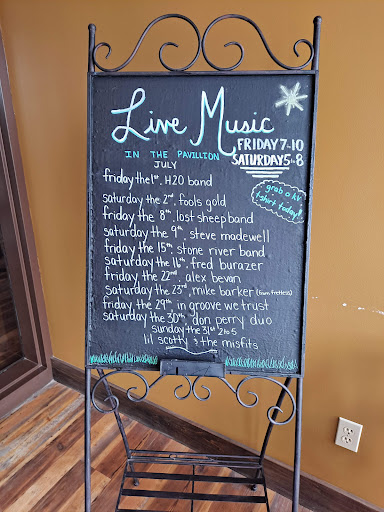 Live Music
FRIDAY 7-10
IN THE PAVILLION
SATURDAY 5-8
JULY
grab a LV
t-shirt today!
friday the 1st. H2O band
saturday the 2nd. fools gold
friday the 8th. lost sheep band
saturday the 9th. steve madewell
friday the 15th. stone river band
saturday the 16th. fred burazer
friday the 22nd. alex bevan
saturday the 23rd, mike barker (from fretless)
friday the 29th, in groove we trust
saturday the 30th, don perry duo
sunday the 31st 2 to 5
lil scotty & the misfits